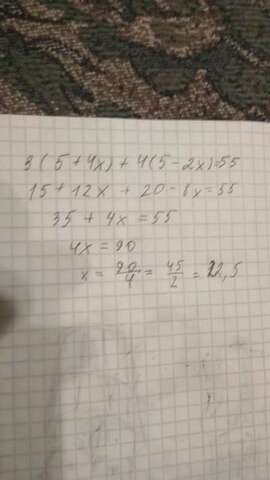 3(5+4x)+4(5-2x)=55
15+12x+20-8x=55
35+4x=55
4x=90
x=90/4=45/2=22,5